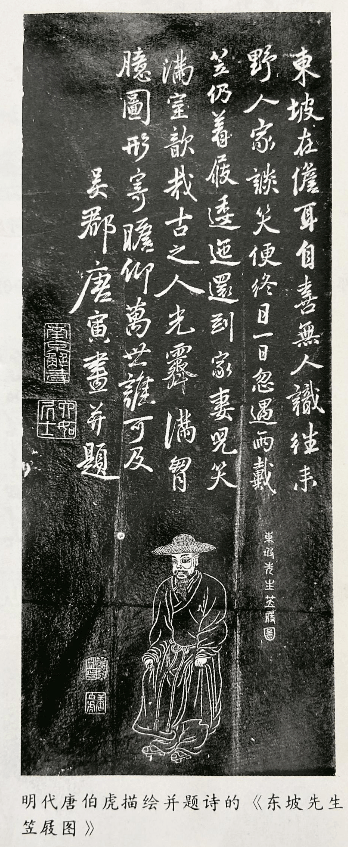 東坡在儋耳自喜無人識往来
野人家談笑便終日一日忽遇雨戴
笠仍着屐逶迤還到家妻兒笑
滿室歆哉古之人光霽滿胸
臆圖形寄瞻仰萬世誰可及
吴郡唐寅畫并題
南京解元
六如居士
東坡先生笠屐圖
明代唐伯虎描绘并题诗的《东坡先生
笠屐图》